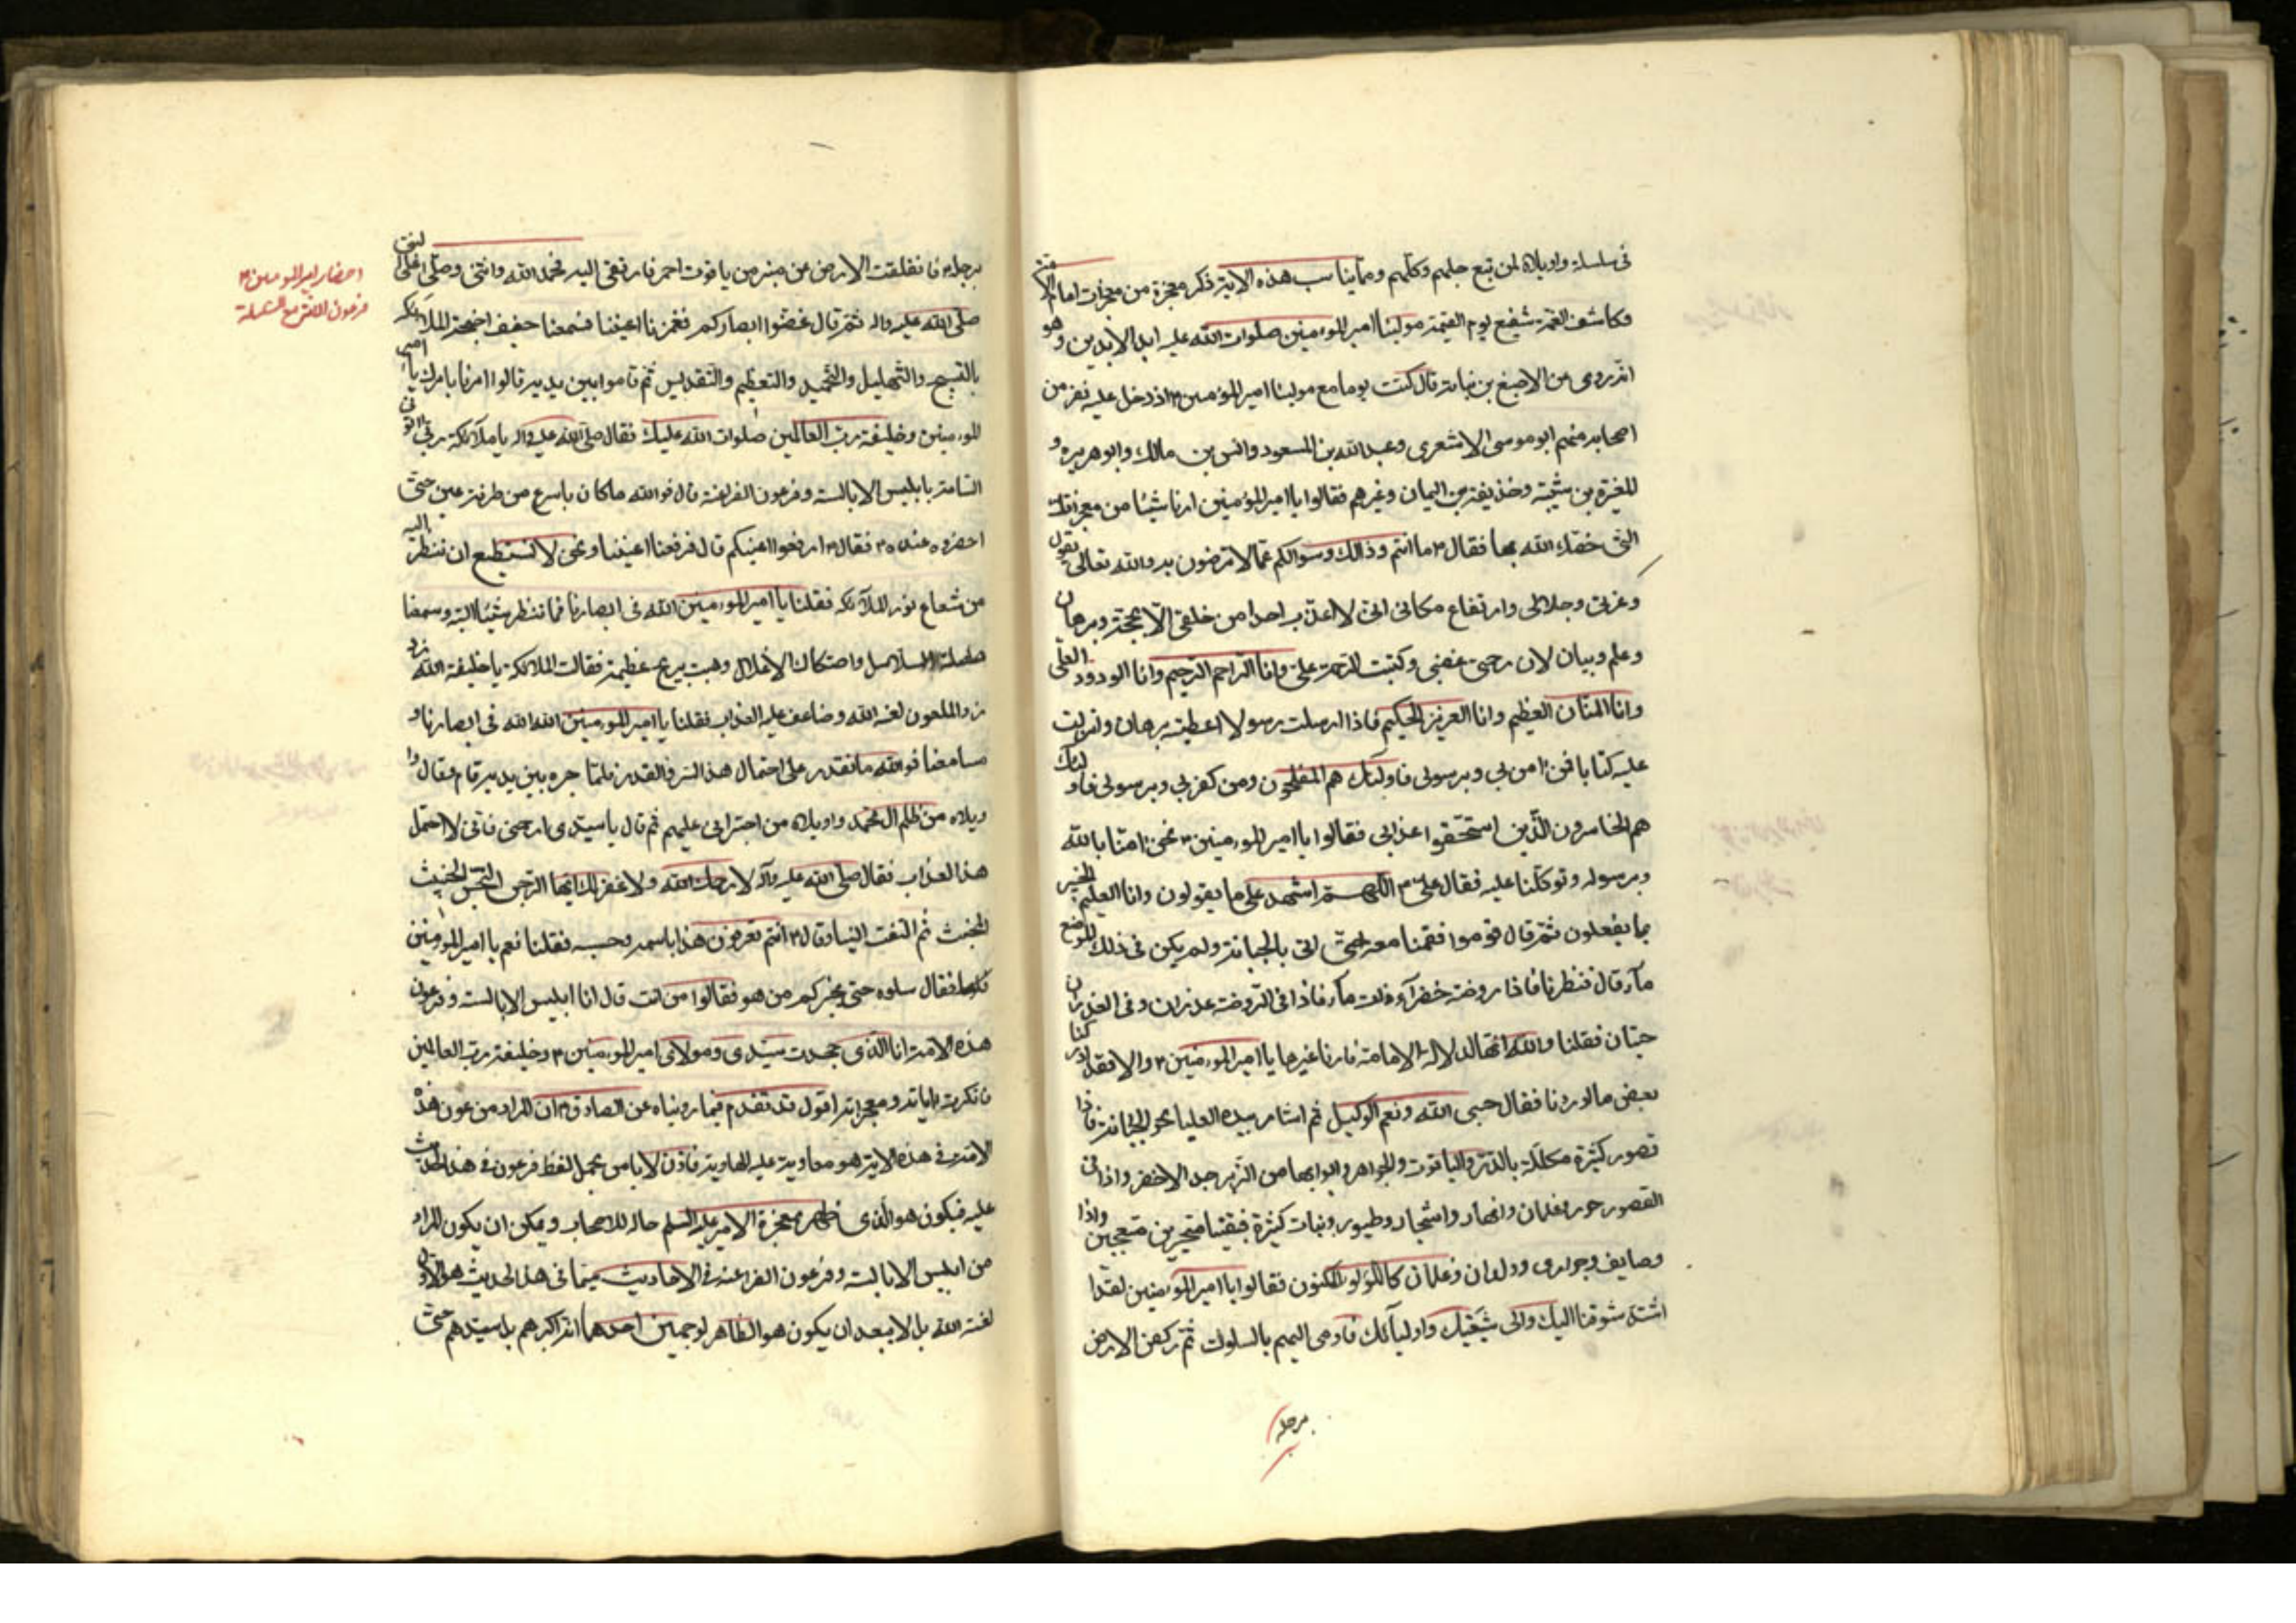 فى سلسلة واويلاه لمن تبع جلهم وكلهم ومما يناسب هذه الاية ذكر معجزة من معجزات امام الامة
وكاشف الغمة شفيع يوم القيمة مولينا امير المؤمنين صلوات الله عليه ابد الابدين وهو
انه روى عن الاصبغ بن نباتة قال كنت يوما مع مولينا امير المؤمنين ٤ اذ دخل عليه نفر من
اصحابه منهم ابو موسى الاشعرى وعبد الله بن المسعود وانس بن مالك وابو هريره و
المغيرة بن شيبة وحذيفة بن اليمان وغيرهم فقالوا يا امير المؤمنين ارنا شيئا من معجزاتك
التى خصك الله بها فقال ٤ ما انتم وذالك وسوالكم عما لا ترضون به والله تعالى يقول
وعزتى وجلالى وارتفاع مكانى انى لا اعذب احدا من خلقى الا بحجة وبرهان
وعلم وبيان لان رحمتى غضبى وكتبت الرحمة على وانا الراحم الرحيم وانا الودود العلى
وانا المنان العظيم وانا العزيز الحكيم فاذا ارسلت رسولا اعطيته برهان وانزلت
عليه كتابا فمن امن بى وبرسولى فاولئك هم المفلحون ومن كفر بى وبرسولى فاولئك
هم الخاسرون الذين استحقوا عذابى فقالوا يا امير المؤمنين ٤ نحن امنا بالله
وبرسوله وتوكلنا عليه فقال على ٤ اللهم اشهد على ما يقولون وانا العليم الخبير
بما يفعلون ثم قال قوموا فقمنا معه حتى اتى بالجبانة ولم يكن فى ذلك الموضع
مآء قال فنظرنا فاذا روضة خضرآء ذات مآء فاذا فى الروضة غدران وفى الغدران
حيتان فقلنا والله انها لدلالة الامامة فارنا غيرها يا امير المؤمنين ٤ والا فقد ادركنا
بعض ما اوردنا فقال حسبى الله ونعم الوكيل ثم اشار بيده العليا نحو الجبانة فاذا
قصور كثيرة مكللة بالدر والياقوت والجواهر وابوابها من الزبرجد الاخضر واذا فى
القصور حور وغلمان وانهار واشجار وطيور ونبات كثيرة فبقينا متحيرين متعجبين واذا
وصايف وجوارى وولدان وغلمان كاللؤلؤ المكنون فقالوا يا امير المؤمنين لقد
اشتد شوقنا اليك والى شيعتك واوليآئك فاومى اليهم بالسكوت ثم ركض الارض
برجله
برجله فانفلقت الارض عن منبر من ياقوت احمر فارتقى اليه فحمد الله واثنى وصلى على النبى
صلى الله عليه واله ثم قال غضوا ابصاركم فغمزنا اعيننا فسمعنا حفيف اجنحة الملآئكه
بالتسبيح والتهليل والتحميد والتعظيم والتقديس ثم قاموا بين يديه قالوا امرنا بامرك يا امير
المؤمنين وخليفة رب العالمين صلوات الله عليك فقال صلى الله عليه واله يا ملآئكة ربى ائتونى
الساعة بابليس الابالسة وفرعون الفراعنة قال فوالله ما كان باسرع من طرفة عين حتى
احضروه عنده ٤ فقال ٤ ارفعوا اعينكم قال فرفعنا اعيننا ونحن لا نستطيع ان ننظر اليه
من شعاع نور الملآئكه فقلنا يا امير المؤمنين الله فى ابصارنا فما ننظر شيئا البتة وسمعنا
صلصلة السلاسل واصتكاك الاغلال وهبت ريح عظيمة فقالت الملائكة يا خليفة الله زد
زد الملعون لعنه الله وضاعف عليه العذاب فقلنا يا امير المؤمنين الله الله فى ابصارنا و
مسامعنا فوالله ما نقدر على احتمال هذا السر والقدر فلما جره بين يديه قام وقال وا
ويلاه من ظلم ال محمد واويلاه من اجترائى عليهم ثم قال يا سيدى ارحمنى فانى لا احتمل
هذا العذاب فقال صلى الله عليه وآله لا رحمك الله ولا غفر لك ايها الرجس النجس الخبيث
المخبث ثم التفت الينا وقال ٤ انتم تعرفون هذا باسمه وحسبه فقلنا نعم يا امير المؤمنين
فقال سلوه حتى يخبركم من هو فقالوا من انت قال انا ابليس الابالسة وفرعون
هذه الامة انا الذى جحدت سيدى ومولاى امير المؤمنين ٤ وخليفة رب العالمين
وانكرت اياته ومعجزاته اقول قد تقدم فيما رويناه عن الصادق ٤ ان المراد من فرعون هذه
الامة فى هذه الاية هو معاوية عليه الهاوية فاذن لا باس بحمل لفظ فرعون فى هذا الحديث
عليه فيكون هو الذى ظهر بمعجزة الامير عليه السلم حاله للاصحاب ويمكن ان يكون المراد
من ابليس الابالسة وفرعون الفراعنه فى الاحاديث سيما فى هذا الحديث هو الاول
لعنه الله بل لا يبعد ان يكون هو الظاهر لوجهين احدهما انه اكبرهم بل سيدهم حتى
احضار امير المؤمنين ٤
فرعون مع السلسلة